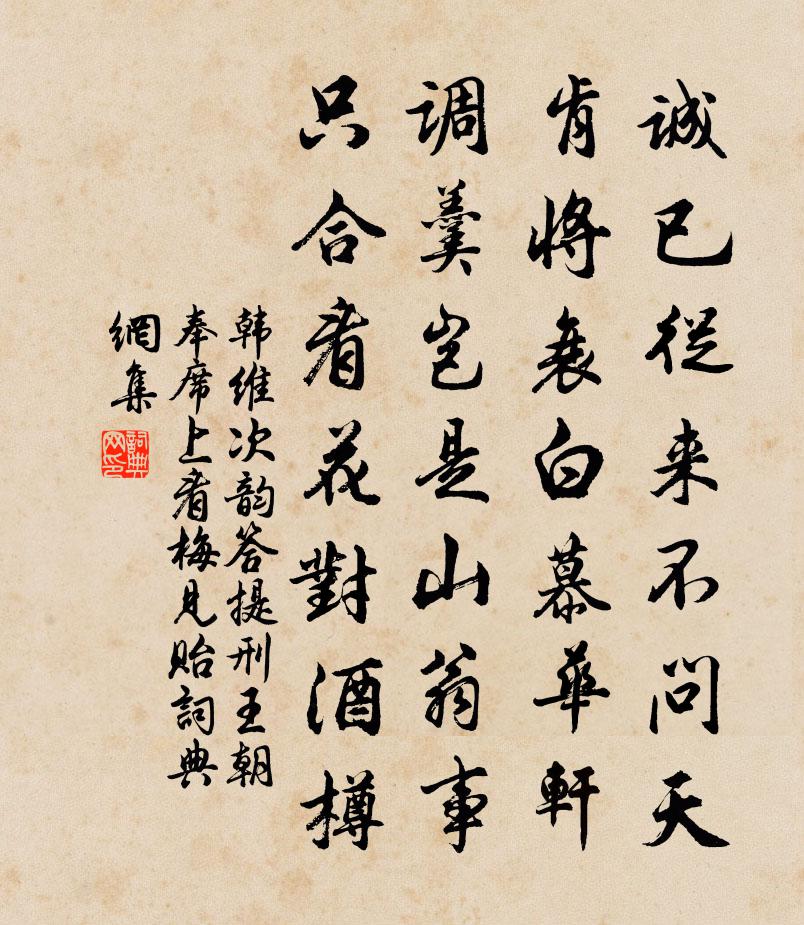 誠已從来不问天
肯將衰白慕華軒
调羹岂是山翁事
只合看花對酒樽
韩維次韵答提刑王朝
奉席上看梅见贻詞典
網集
詞典
网印